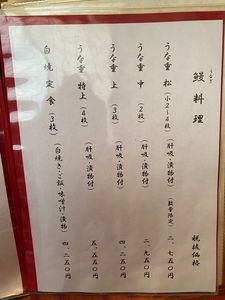 うなぎ
鰻料理
税抜価格
うな重 松(小2〜4枚)(肝吸・漬物付)(数量限定)二、七五〇円
うな重 中(2枚)(肝吸・漬物付)二、九五〇円
うな重 上(3枚)(肝吸・漬物付)四、二五〇円
うな重 特上(4枚)(肝吸・漬物付)五、五五〇円
白焼定食(3枚)(白焼き・ご飯・味噌汁・漬物)四、二五〇円